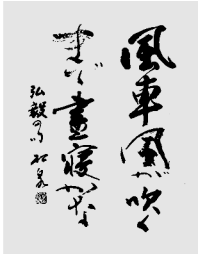 風車風が吹く
まで晝寝かな
弘毅の句